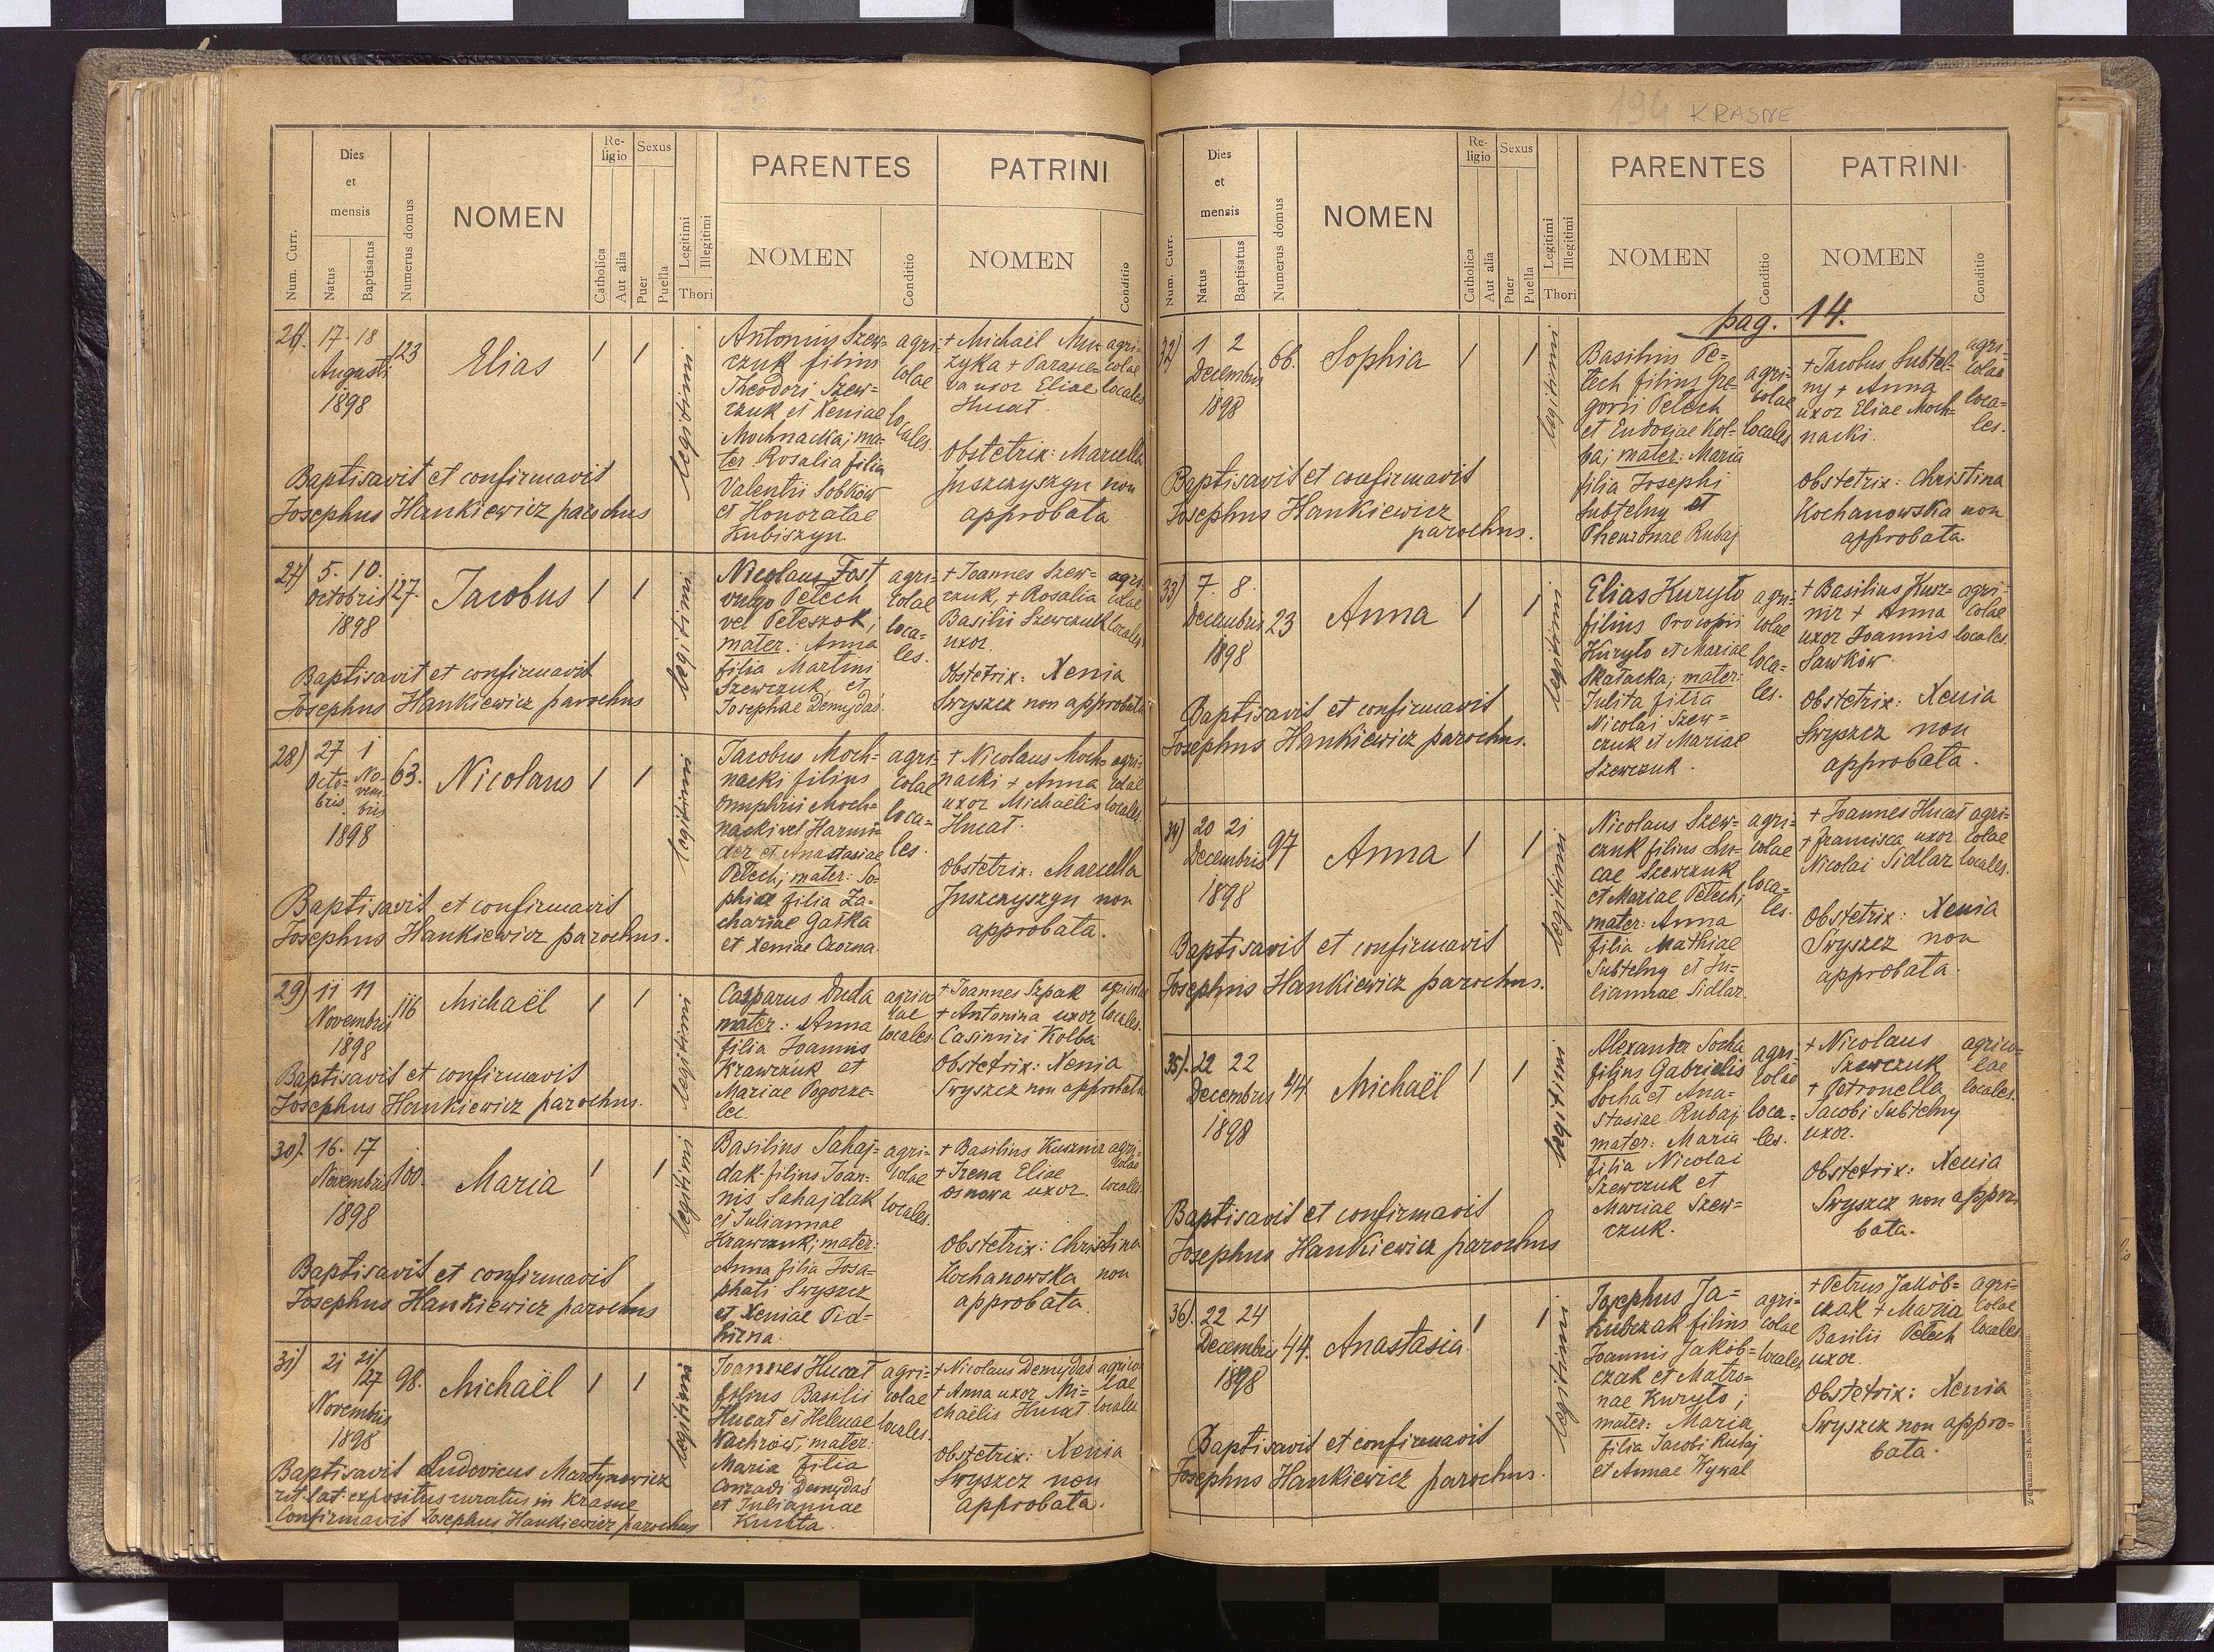 194 KRASNE
Dies et mensis
Natus
Baptisatus
Num. Curr.
Numerus domus
NOMEN
Religio
Catholica
Aut alia
Sexus
Puer
Puella
Legitimi
Illegitimi
Thori
PARENTES
NOMEN
Conditio
PATRINI
NOMEN
Conditio
26. 17. 18 Augusti 1898
123
Elias
1 1
legitimi
Antonius Szew-
czuk filius
Theodori Szew-
czuk et Xeniae
Mochnacka; ma-
ter Rosalia filia
Valentii Sobków
et Honoratae
Kubiszyn
agri-
colae
locales.
+ Michaël Mu-
zyka + Parasce-
va uxor Eliae
Hucał.
agri-
colae
locales
Obstetrix: Marcella
Juszczyszyn non
approbata
Baptisavit et confirmavit
Josephus Hankiewicz parochus
27) 5. 10. Octobris 1898
127.
Jacobus
1 1
legitimi
Nicolaus Fost
vulgo Petech
vel Peteszok;
mater: Anna
filia Martini
Szewczuk et
Josephae Demydaś.
agri-
colae
loca-
les.
+ Joannes Szew-
czuk, + Rosalia
Basilii Szewczuk
uxor.
agri-
colae
locales
Obstetrix: Xenia
Swyszcz non approbata
Baptisavit et confirmavit
Josephus Hankiewicz parochus
28) 27 Octo-
bris 1 No-
vem-
bris
1898
63.
Nicolaus
1 1
legitimi
Jacobus Moch-
nacki filius
Onuphrii Moch-
nacki vel Harmi-
der et Anastasiae
Petech; mater: So-
phiae filia Za-
chariae Gałka
et Xeniae Czorna.
agri-
colae
loca-
les.
+ Nicolaus Moch-
nacki + Anna
uxor Michaëlis
Hucał.
agri-
colae
locales
Obstetrix: Marcella
Juszczyszyn non
approbata.
Baptisavit et confirmavit
Josephus Hankiewicz parochus.
29) 11 11 Novembris 1898
116
Michaël
1 1
legitimi
Casparus Duda
mater: Anna
filia Joannis
Krawczuk et
Mariae Pogorze-
lec.
agrico-
lae
locales.
+ Joannes Szpak
+ Antonina uxor
Casimiri Kolba
agricolae
locales.
Obstetrix: Xenia
Swyszcz non approbata
Baptisavit et confirmavit
Josephus Hankiewicz parochus.
30). 16. 17 Novembris 1898
100.
Maria
1 1
legitimi
Basilius Sahaj-
dak filius Joan-
nis Sahajdak
et Juliannae
Krawczuk; mater:
Anna filia Josa-
phati Swyszcz
et Xeniae Pid-
hirna.
agri-
colae
locales.
+ Basilius Kusznir
+ Irena Eliae
Osnowa uxor.
agri-
colae
locales.
Obstetrix: Christina
Kochanowska non
approbata.
Baptisavit et confirmavit
Josephus Hankiewicz parochus
31) 21 21/27 Novembris 1898
98.
Michaël
1 1
legitimi
Joannes Hucał
filius Basilii
Hucał et Helenae
Wachrów, mater:
Maria filia
Conradi Demydaś
et Juliannae
Kushta.
agri-
colae
locales.
+ Nicolaus Demydaś
+ Anna uxor Mi-
chaëlis Hucał
agrico-
lae
locales
Obstetrix: Xenia
Swyszcz non
approbata.
Baptisavit Ludovicus Martynowicz
rit. lat. expositus curatus in Krasne
Confirmavit Josephus Hankiewicz parochus
Dies et mensis
Natus
Baptisatus
Num. Curr.
Numerus domus
NOMEN
Religio
Catholica
Aut alia
Sexus
Puer
Puella
Legitimi
Illegitimi
Thori
PARENTES
NOMEN
Conditio
PATRINI
NOMEN
Conditio
pag. 14.
32) 1 2 Decembris 1898
66.
Sophia
1 1
legitimi
Basilius Pe-
tech filius Gre-
gorii Petech
et Eudociae Kol-
ba; mater: Maria
filia Josephi
Subtelny et
Pheuronae Rubaj
agri-
colae
locales
+ Jacobus Subtel-
ny + Anna
uxor Eliae Moch-
nacki.
agri-
colae
loca-
les.
Obstetrix: Christina
Kochanowska non
approbata.
Baptisavit et confirmavit
Josephus Hankiewicz
parochus.
33) 7. 8. Decembris 1898
23
Anna
1 1
legitimi
Elias Kuryło
filius Procopii
Kuryło et Mariae
Skałacka; mater:
Julita filia
Nicolai Szew-
czuk et Mariae
Szewczuk.
agri-
colae
loca-
les.
+ Basilius Kusz-
nir + Anna
uxor Joannis
Sawków.
agri-
colae
locales.
Obstetrix: Xenia
Swyszcz non
approbata.
Baptisavit et confirmavit
Josephus Hankiewicz parochus.
34) 20 21 Decembris 1898
97
Anna
1 1
legitimi
Nicolaus Szew-
czuk filius Lu-
cae Szewczuk
et Mariae Petech;
mater: Anna
filia Mathiae
Subtelny et Ju-
liannae Sidlar.
agri-
colae
loca-
les.
+ Joannes Hucał
+ Francisca uxor
Nicolai Sidlar
agri-
colae
locales.
Obstetrix: Xenia
Swyszcz non
approbata.
Baptisavit et confirmavit
Josephus Hankiewicz parochus.
35). 22 22 Decembris 1898
44.
Michaël
1 1
legitimi
Alexander Socha
filius Gabrielis
Socha et Ana-
stasiae Rubaj
mater: Maria
filia Nicolai
Szewczuk et
Mariae Szew-
czuk.
agri-
colae
loca-
les.
+ Nicolaus
Szewczuk
+ Petronella
Jacobi Subtelny
uxor.
agrico-
lae
locales.
Obstetrix: Xenia
Swyszcz non appro-
bata.
Baptisavit et confirmavit
Josephus Hankiewicz parochus
36). 22 24 Decembris 1898
44.
Anastasia
1 1
legitimi
Josephus Ja-
kubczak filius
Joannis Jakób-
czak et Matro-
nae Kuryło;
mater: Maria
filia Jacobi Rubaj
et Annae Wywał
agri-
colae
locales
+ Petrus Jakób-
czak + Maria
Basilii Petech
uxor.
agri-
colae
locales
Obstetrix: Xenia
Swyszcz non appro-
bata.
Baptisavit et confirmavit
Josephus Hankiewicz parochus.